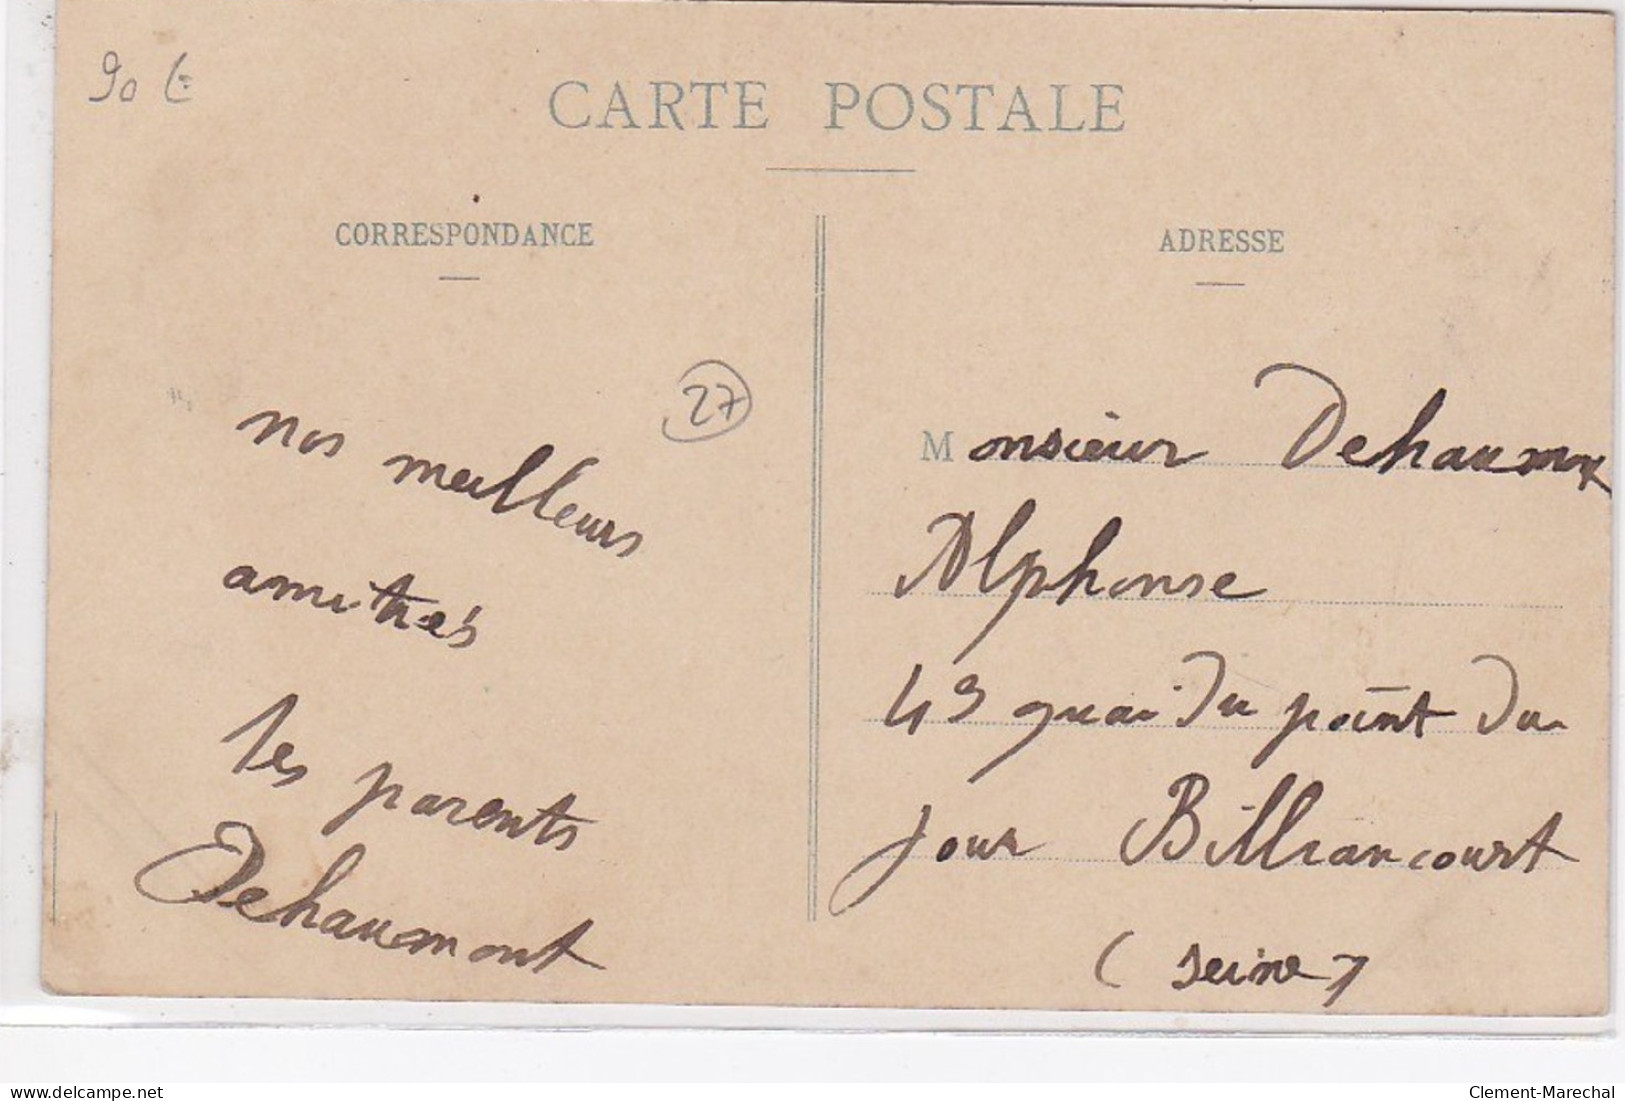 90 €
CARTE POSTALE
CORRESPONDANCE
27
nos meilleurs
amitiés
tes parents
Dehaumont
ADRESSE
Monsieur Dehaumont
Alphonse
43 quai du point du
jour Billiancourt
(seine)
www.delcampe.net
Clement-Marechal